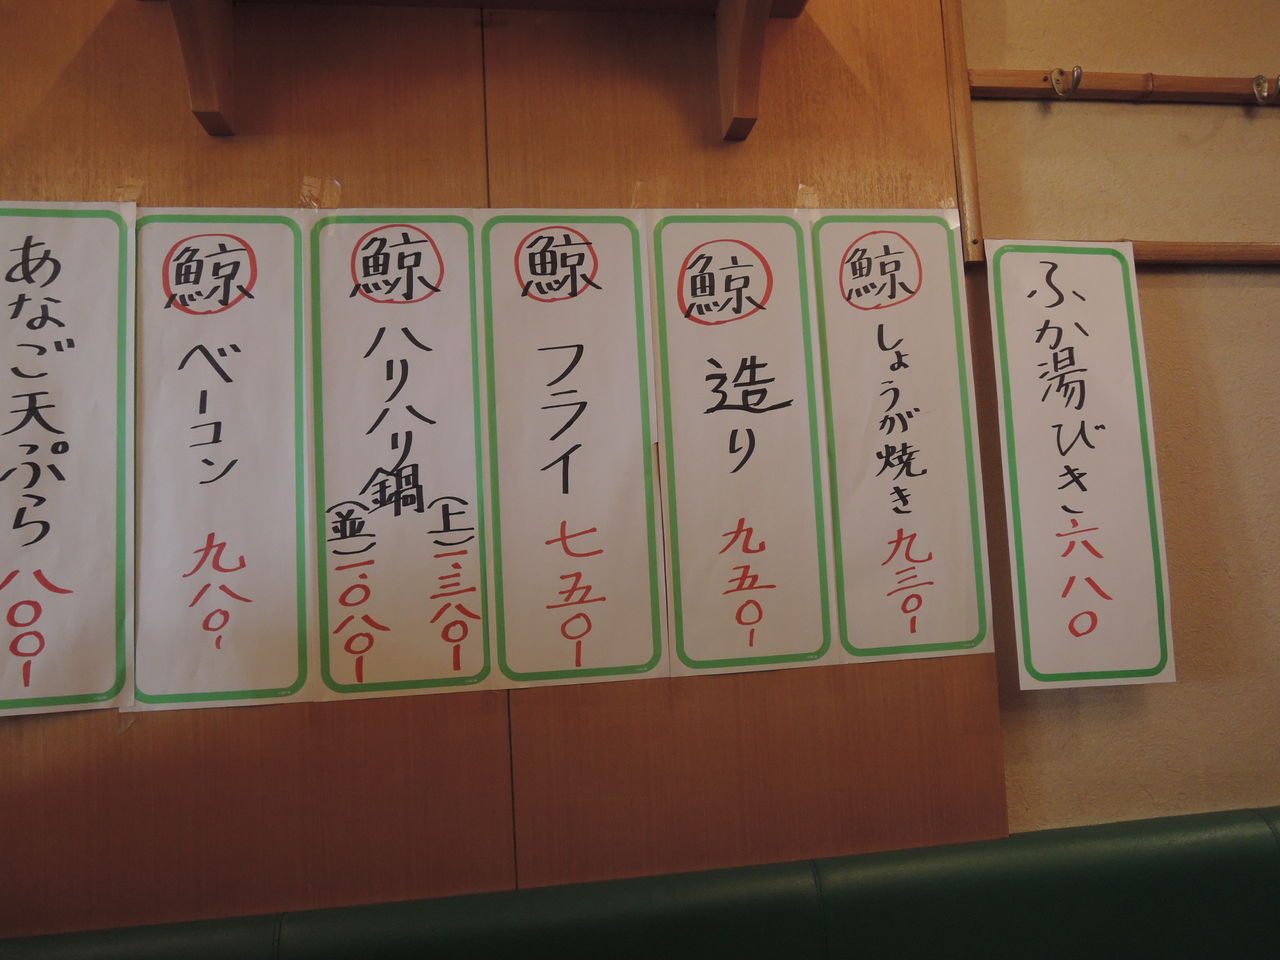 ふか湯びき 六八〇
鯨 しょうが焼き 九三〇ー
鯨 造り 九五〇ー
鯨 フライ 七五〇ー
鯨 ハリハリ鍋
(上)一、三八〇ー
(並)一、〇八〇ー
鯨 ベーコン 九八〇ー
あなご天ぷら 八〇〇ー